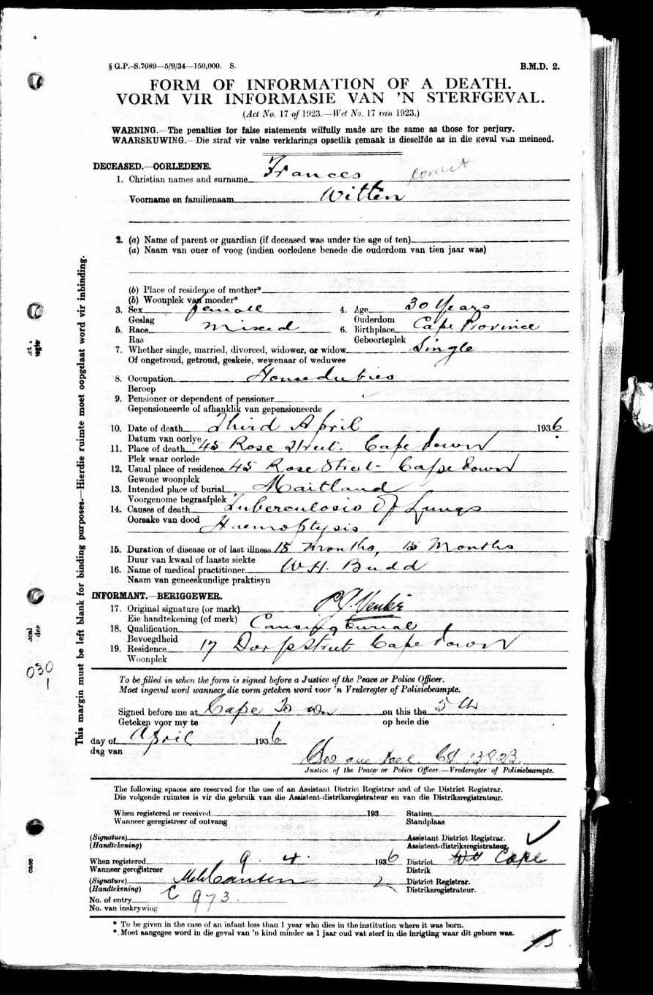 § G.P.-S.7089—5/9/34—150,000. S. B.M.D. 2.
FORM OF INFORMATION OF A DEATH.
VORM VIR INFORMASIE VAN 'N STERFGEVAL.
(Act No. 17 of 1923.—Wet No. 17 van 1923.)
WARNING.—The penalties for false statements wilfully made are the same as those for perjury.
WAARSKUWING.—Die straf vir valse verklarings opsetlik gemaak is dieselfde as in die geval van meineed.
DECEASED.—OORLEDENE.
1. Christian names and surname Frances
Voorname en familienaam Witten
2. (a) Name of parent or guardian (if deceased was under the age of ten)
(a) Naam van ouer of voog (indien oorledene benede die ouderdom van tien jaar was)
(b) Place of residence of mother*
(b) Woonplek van moeder*
3. Sex female 4. Age 30 Years
Geslag Ouderdom
5. Race mixed 6. Birthplace Cape Province
Ras Geboorteplek
7. Whether single, married, divorced, widower, or widow Single
Of ongetroud, getroud, geskeie, wewenaar of weduwee
8. Occupation House duties
Beroep
9. Pensioner or dependent of pensioner
Gepensioneerde of afhanklik van gepensioneerde
10. Date of death Third April 1936
Datum van oorlye
11. Place of death 45 Rose Street. Cape Town
Plek waar oorlede
12. Usual place of residence 45 Rose Street Cape Town
Gewone woonplek
13. Intended place of burial Maitland
Voorgenome begraafplek
14. Causes of death Tuberculosis of Lungs
Oorsake van dood Haemoptysis
15. Duration of disease or of last illness 15 months, 15 months
Duur van kwaal of laaste siekte
16. Name of medical practitioner W.H. Budd
Naam van geneeskundige praktisyn
INFORMANT.—BERIGGEWER.
17. Original signature (or mark)
Eie handtekening (of merk)
18. Qualification Causing Burial
Bevoegdheid
19. Residence 17 Dorp Street Cape Town
Woonplek
To be filled in when the form is signed before a Justice of the Peace or Police Officer.
Moet ingevul word wanneer die vorm geteken word voor 'n Vrederegter of Polisiebeampte.
Signed before me at Cape Town on this the 5th
Geteken voor my te op hede die
day of April 1936
dag van
Justice of the Peace or Police Officer.—Vrederegter of Polisiebeampte.
The following spaces are reserved for the use of an Assistant District Registrar and of the District Registrar.
Die volgende ruimtes is vir die gebruik van die Assistent-distriksregistrateur en van die Distriksregistrateur.
When registered or received 193 Station
Wanneer geregistreer of ontvang Standplaas
(Signature) Assistant District Registrar.
(Handtekening) Assistent-distriksregistrateur.
When registered 9. 4. 1936 District Cape
Wanneer geregistreer Distrik
(Signature) District Registrar.
(Handtekening) Distriksregistrateur.
No. of entry C 973.
No. van inskrywing
* To be given in the case of an infant less than 1 year who dies in the institution where it was born.
* Moet aangegee word in die geval van 'n kind minder as 1 jaar oud wat sterf in die inrigting waar dit gebore was.
This margin must be left blank for binding purposes.—Hierdie ruimte moet oopgelaat word vir inbinding.
030
1